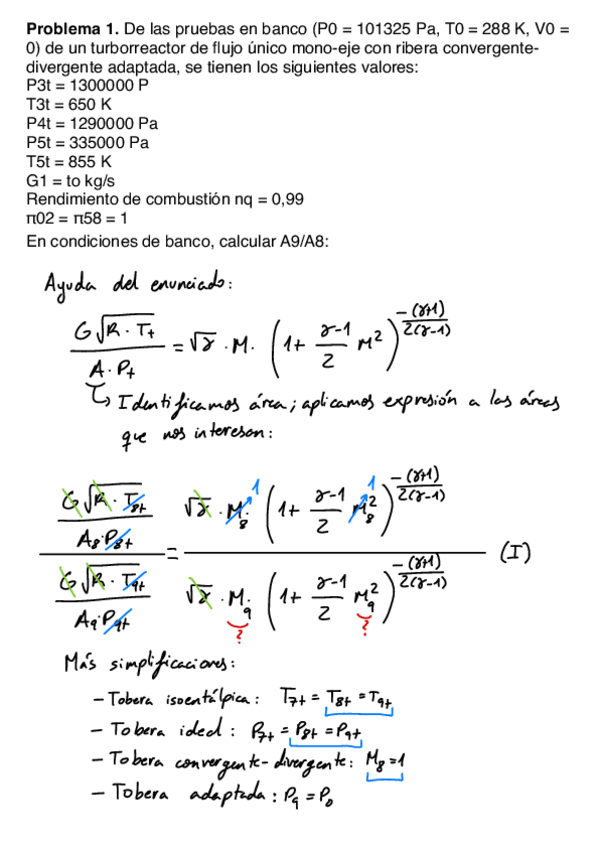 Problema 1. De las pruebas en banco (P0 = 101325 Pa, T0 = 288 K, V0 =
0) de un turborreactor de flujo único mono-eje con ribera convergente-
divergente adaptada, se tienen los siguientes valores:
P3t = 1300000 P
T3t = 650 K
P4t = 1290000 Pa
P5t = 335000 Pa
T5t = 855 K
G1 = to kg/s
Rendimiento de combustión nq = 0,99
π02 = π58 = 1
En condiciones de banco, calcular A9/A8:
Ayuda del enunciado:
G√(R·Tt) / (A·Pt) = √γ · M · (1 + (γ-1)/2 M²)^(-(γ+1)/(2(γ-1)))
↳ Identificamos área; aplicamos expresión a las áreas
que nos interesan:
(G√(R·T8t) / (A8·P8t)) / (G√(R·T9t) / (A9·P9t)) = (√γ · M8 (1 + (γ-1)/2 M8²)^(-(γ+1)/(2(γ-1)))) / (√γ · M9 (1 + (γ-1)/2 M9²)^(-(γ+1)/(2(γ-1)))) (I)
1 1
? ?
Más simplificaciones:
- Tobera isoentálpica: T7t = T8t = T9t
- Tobera ideal: P7t = P8t = P9t
- Tobera convergente-divergente: M8 = 1
- Tobera adaptada: P9 = P0